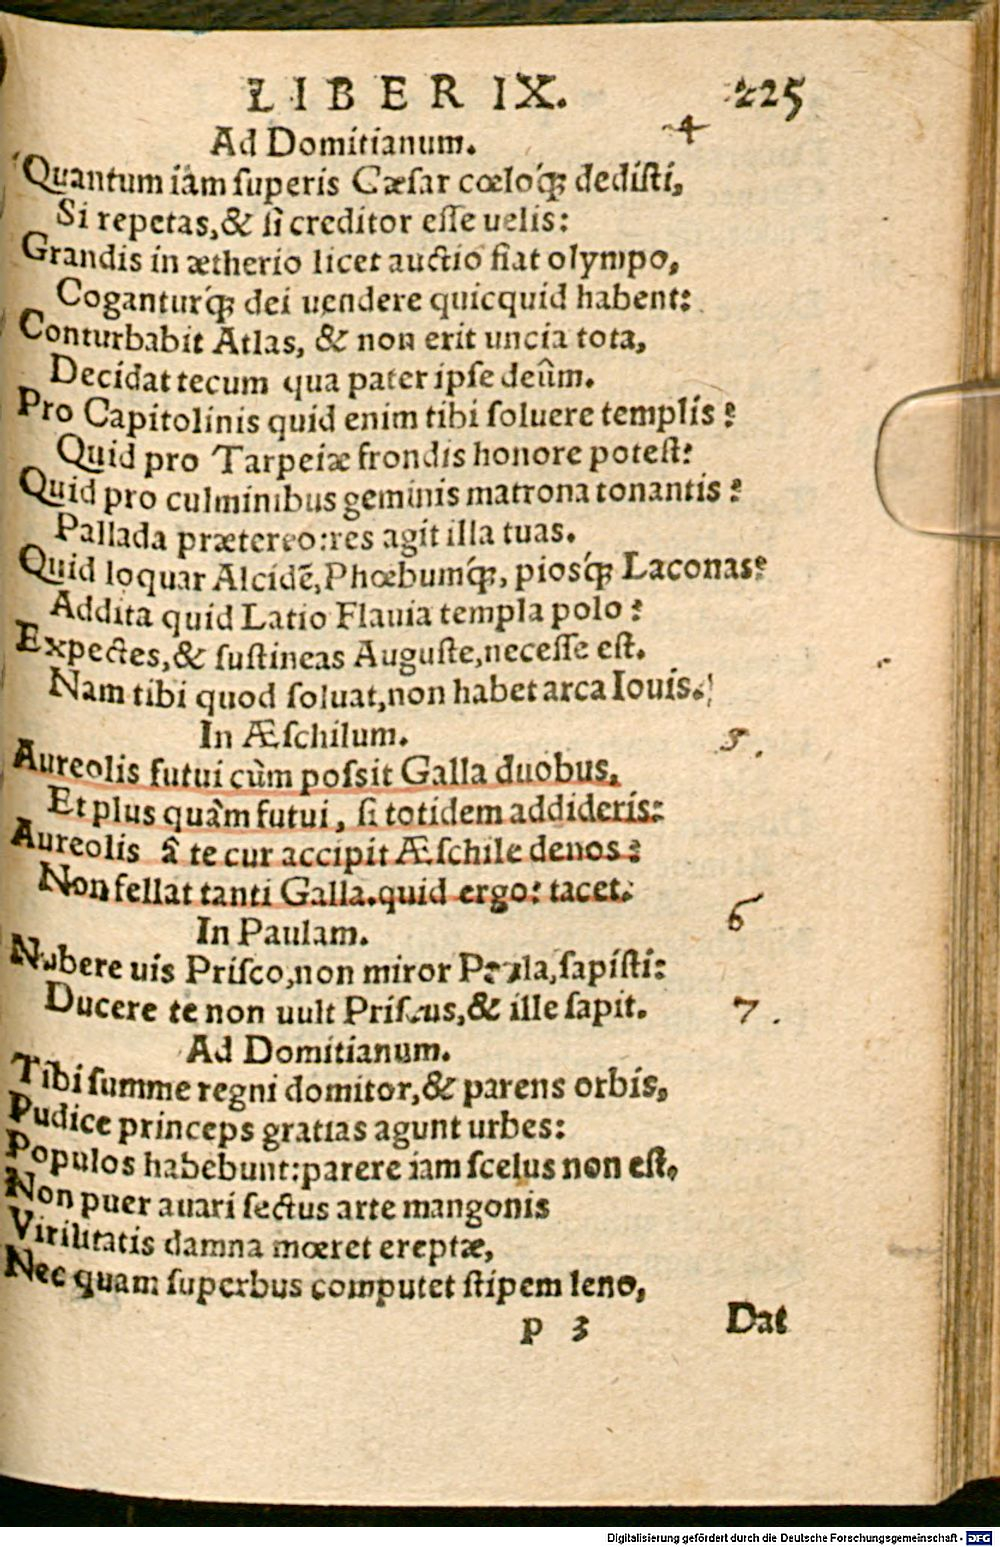 LIBER IX. 225
Ad Domitianum. 4
Quantum iâm superis Cæsar cœloq́; dedisti,
Si repetas, & sî creditor esse uelis:
Grandis in ætherio licet auctio fiat olympo,
Coganturq́; dei uendere quicquid habent:
Conturbabit Atlas, & non erit uncia tota,
Decidat tecum qua pater ipse deûm.
Pro Capitolinis quid enim tibi soluere templis?
Quid pro Tarpeiæ frondis honore potest?
Quid pro culminibus geminis matrona tonantis?
Pallada prætereo: res agit illa tuas.
Quid loquar Alcidē, Phœbumq́;, piosq́; Laconas?
Addita quid Latio Flauia templa polo?
Expectes, & sustineas Auguste, necesse est.
Nam tibi quod soluat, non habet arca Iouis.
In Æschilum. 5.
Aureolis futui cùm possit Galla duobus,
Et plus quàm futui, si totidem addideris:
Aureolis â te cur accipit Æschile denos?
Non fellat tanti Galla. quid ergo? tacet.
In Paulam. 6
Nubere uis Prisco, non miror Paula, sapisti:
Ducere te non uult Priscus, & ille sapit.
7.
Ad Domitianum.
Tibi summe regni domitor, & parens orbis,
Pudice princeps gratias agunt urbes:
Populos habebunt: parere iam scelus non est,
Non puer auari sectus arte mangonis
Virilitatis damna mœret ereptæ,
Nec quam superbus computet stipem leno,
p 3 Dat
Digitalisierung gefördert durch die Deutsche Forschungsgemeinschaft - DFG